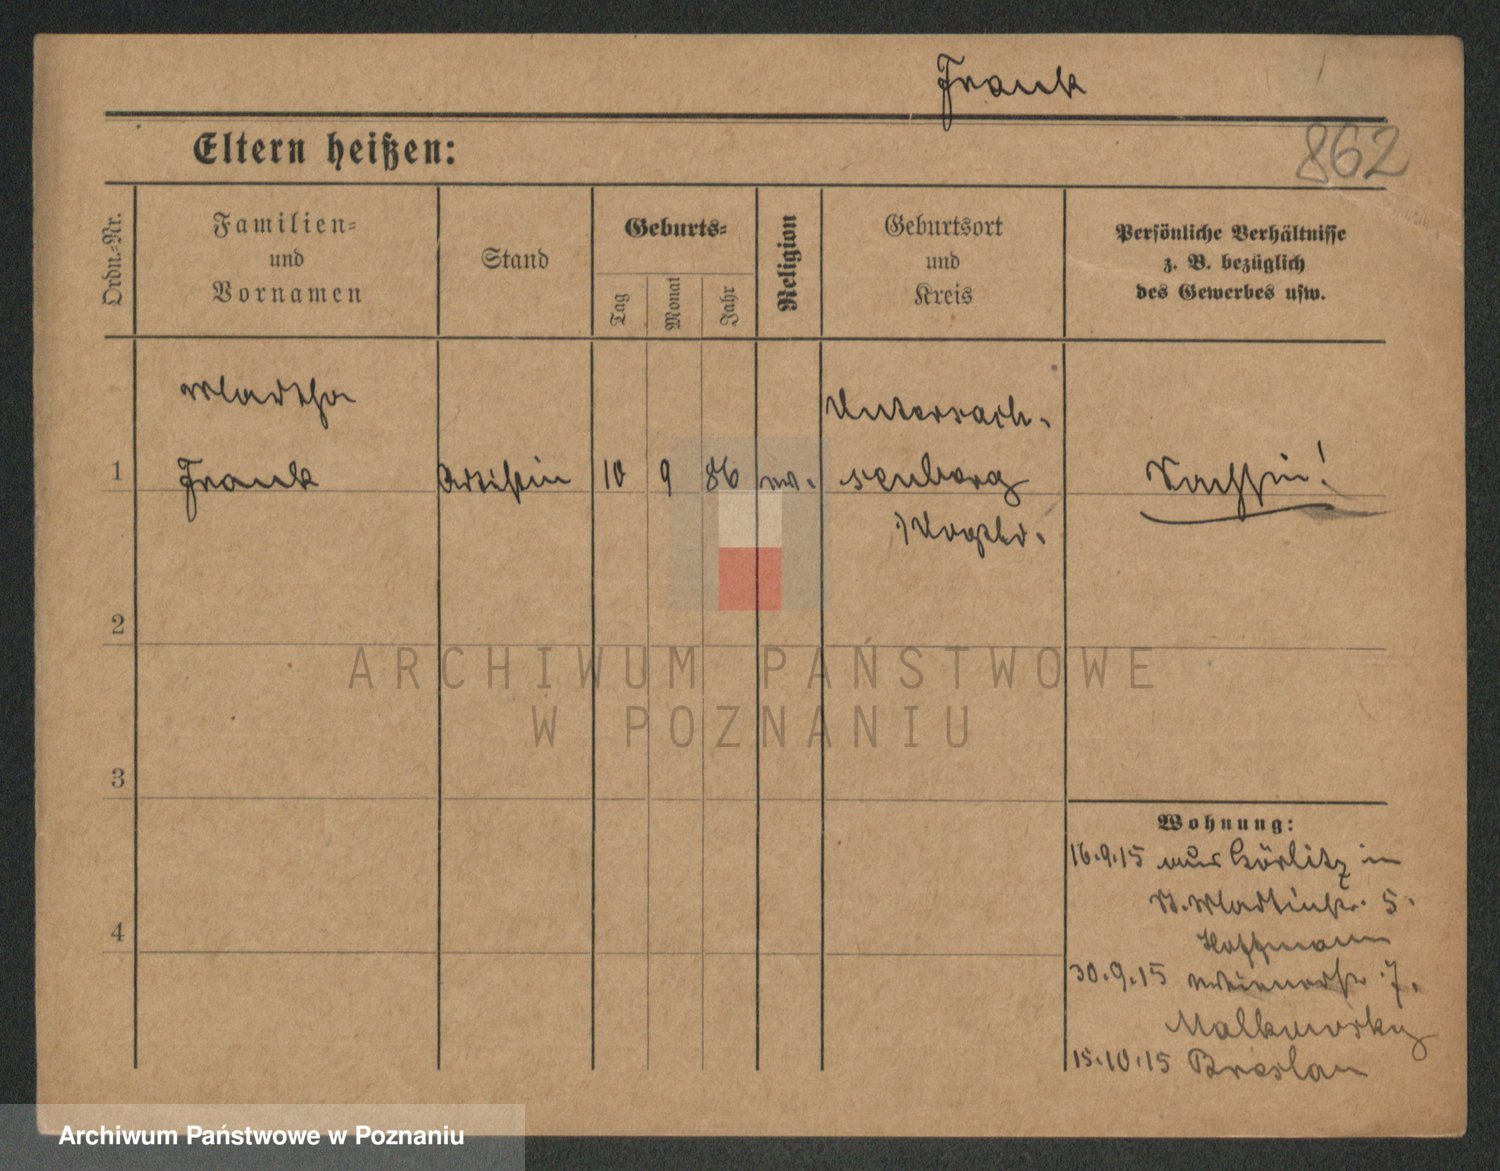 Frank
862
Eltern heißen:
Ordn.-Nr.
Familien-
und
Vornamen
Stand
Geburts-
Tag
Monat
Jahr
Religion
Geburtsort
und
Kreis
Persönliche Verhältnisse
z. B. bezüglich
des Gewerbes usw.
Martha
Untersach-
1 Frank Artistin 10 9 86 ev. senberg Sächsin!
i/Vogtld.
2
ARCHIWUM PAŃSTWOWE
W POZNANIU
3
Wohnung:
16.9.15 aus Görlitz in
St. Martinstr. 5.
Hoffmann
4
30.9.15 7.
Malkowsky
15.10.15 Breslau
Archiwum Państwowe w Poznaniu